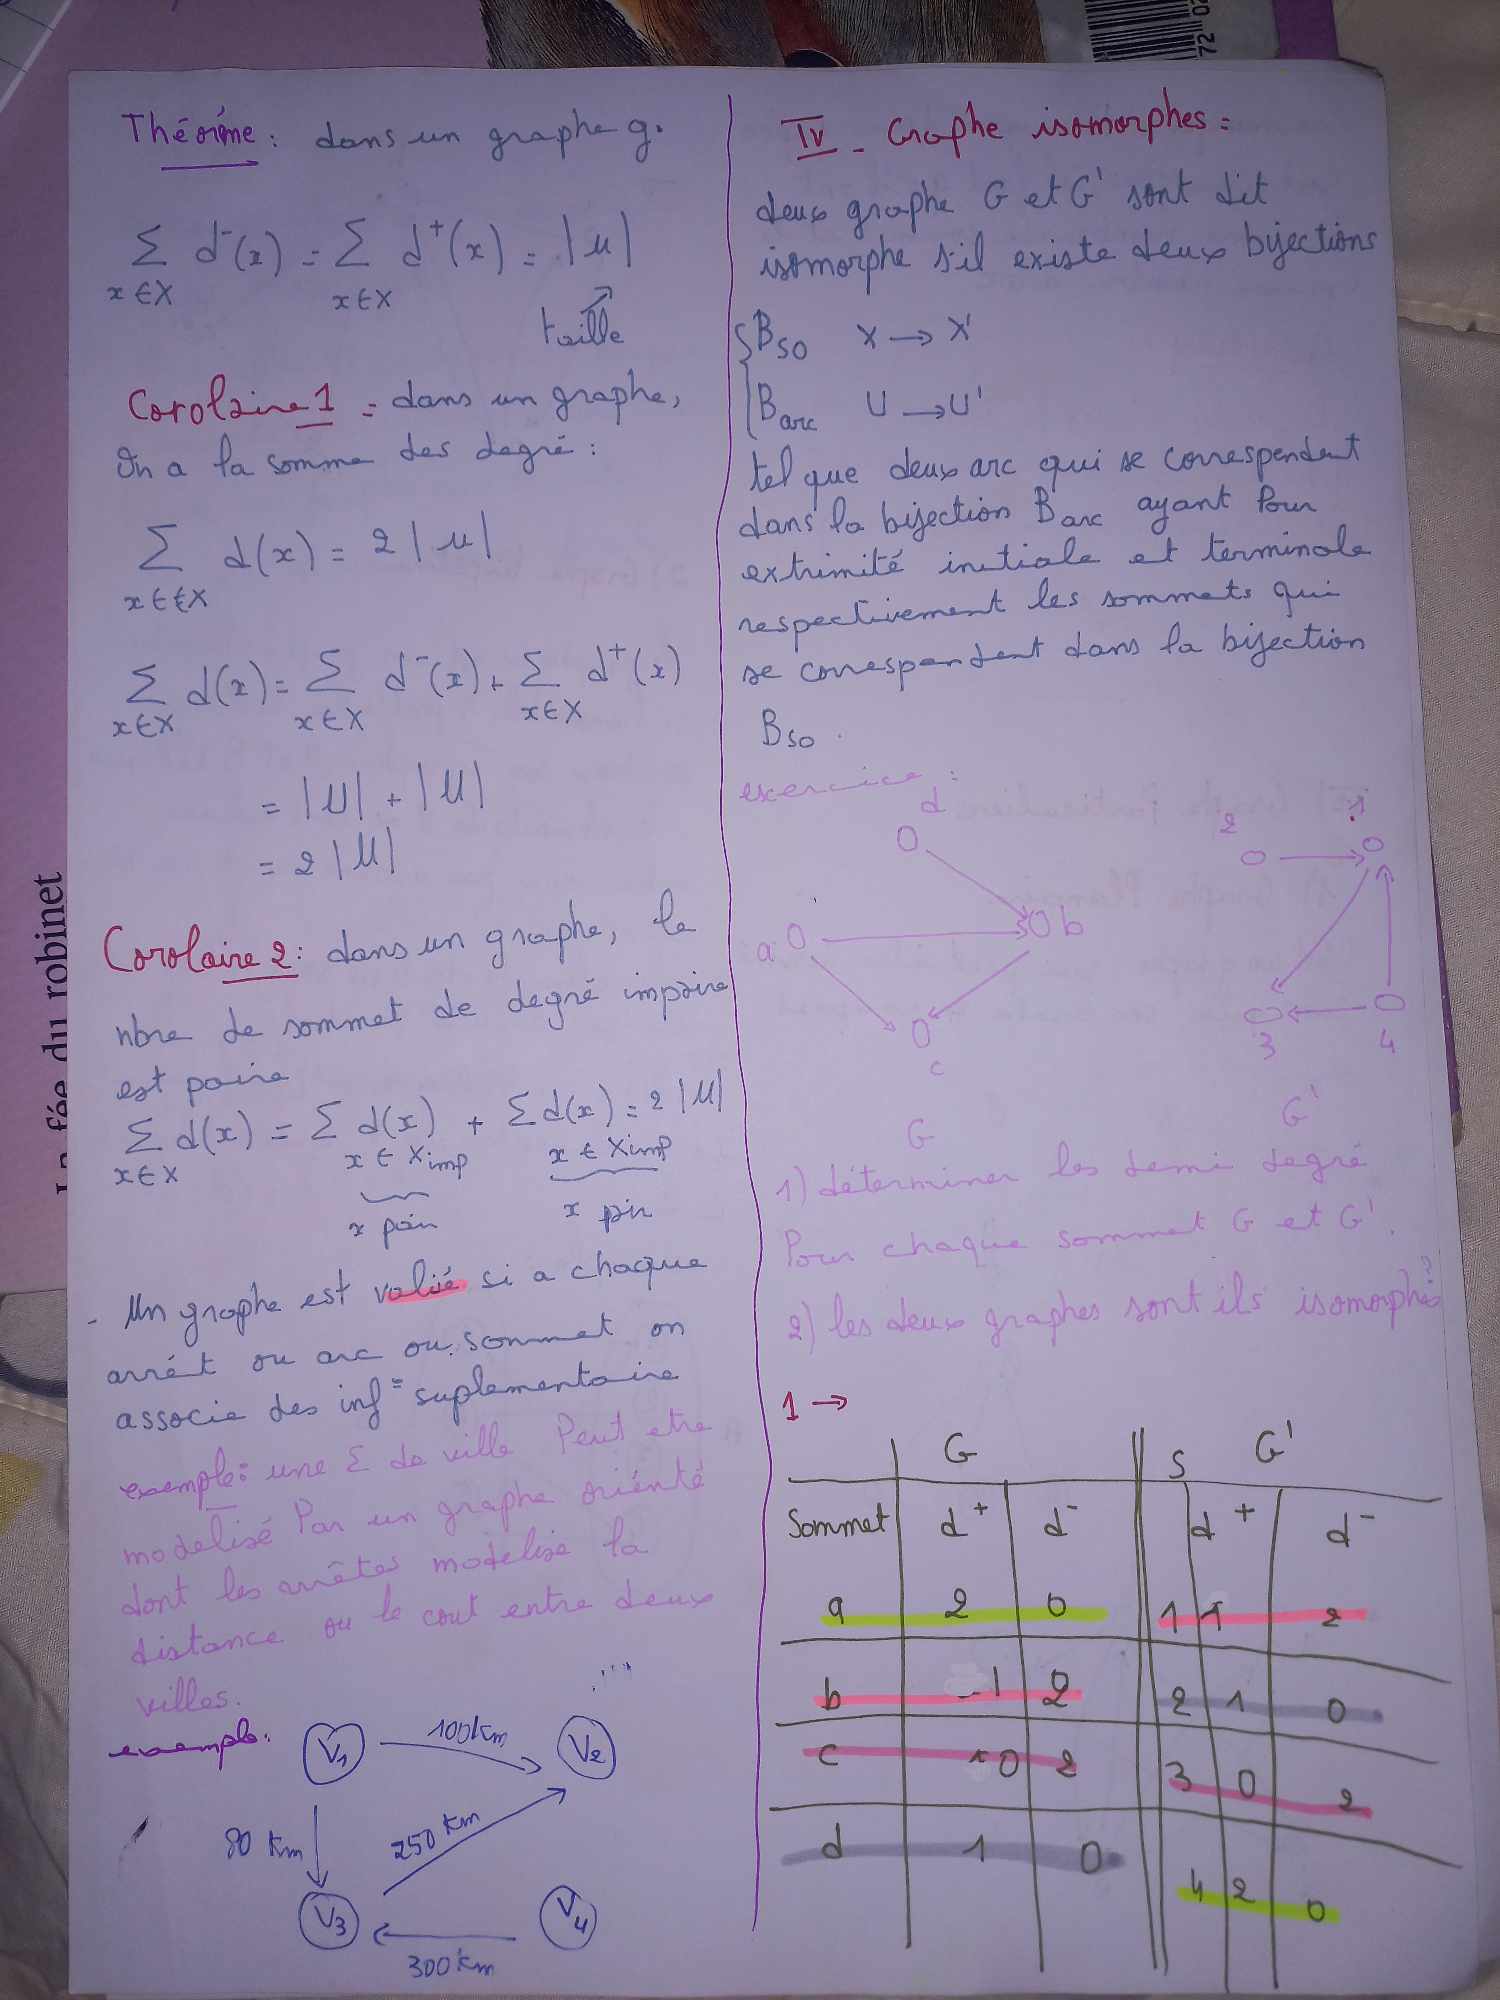 Théorime : dans un graphe g.
∑ d⁻(x) = ∑ d⁺(x) = |u|
x∈X x∈X
taille
Corolaire 1 = dans un graphe,
On a la somme des degré :
∑ d(x) = 2|u|
x∈€X
∑ d(x) = ∑ d⁻(x) + ∑ d⁺(x)
x∈X x∈X x∈X
= |U| + |U|
= 2|U|
Corolaire 2 : dans un graphe, le
nbre de sommet de degré impaire
est paire
∑ d(x) = ∑ d(x) + ∑ d(x) = 2|U|
x∈X x∈Ximp x∈Ximp
- Un graphe est valié si a chaque
arrét ou arc ou sommet on
associe des inf= suplementaire
exemple: une Σ de ville Peut etre
modelisé Par un graphe oriénté
dont les arrêtes modelise la
distance ou le cout entre deux
villes.
exemple:
V1 100Km V2
80 Km 250 Km
V3 V4
300 Km
IV - Graphe isomorphes =
deux graphe G et G' sont dit
isomorphe s'il existe deux bijections
B so X → X'
B arc U → U'
tel que deux arc qui se correspendent
dans la bijection B arc ayant Pour
extrimité initiale et terminale
respectivement les sommets qui
se correspendent dans la bijection
B so .
exercice :
d
a b
c
G
2 1
3 4
G'
1) déterminer les demi degré
Pour chaque sommet G et G'.
2) les deux graphes sont ils isomorphes?
1 →
G S G'
Sommet d⁺ d⁻ d⁺ d⁻
a 2 0 1 1 2
b 1 2 2 1 0
c 0 2 3 0 2
d 1 0 4 2 0
fée du robinet
72 02